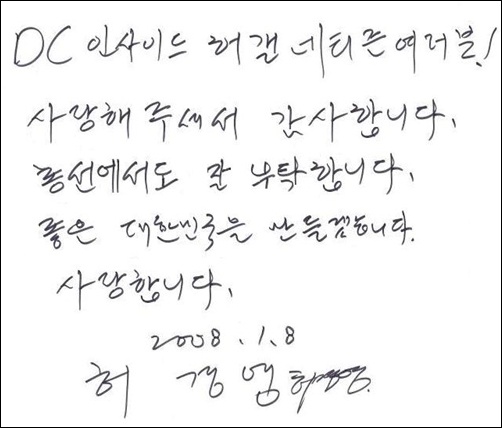 DC 인사이드 허갤 네티즌 여러분!
사랑해 주셔서 감사합니다.
총선에서도 잘 부탁합니다.
좋은 대한민국을 만들겠습니다.
사랑합니다.
2008.1.8
허경영